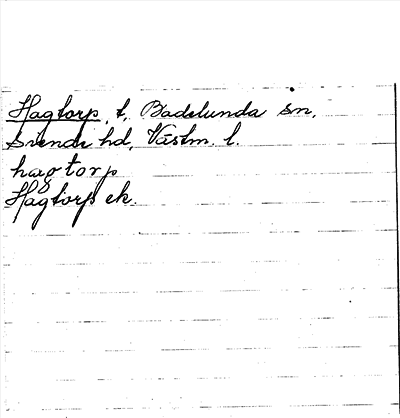 Hagtorp, t, Badelunda sn,
Siende hd, Västm. l.
hagtorp
Hagtorp ek.